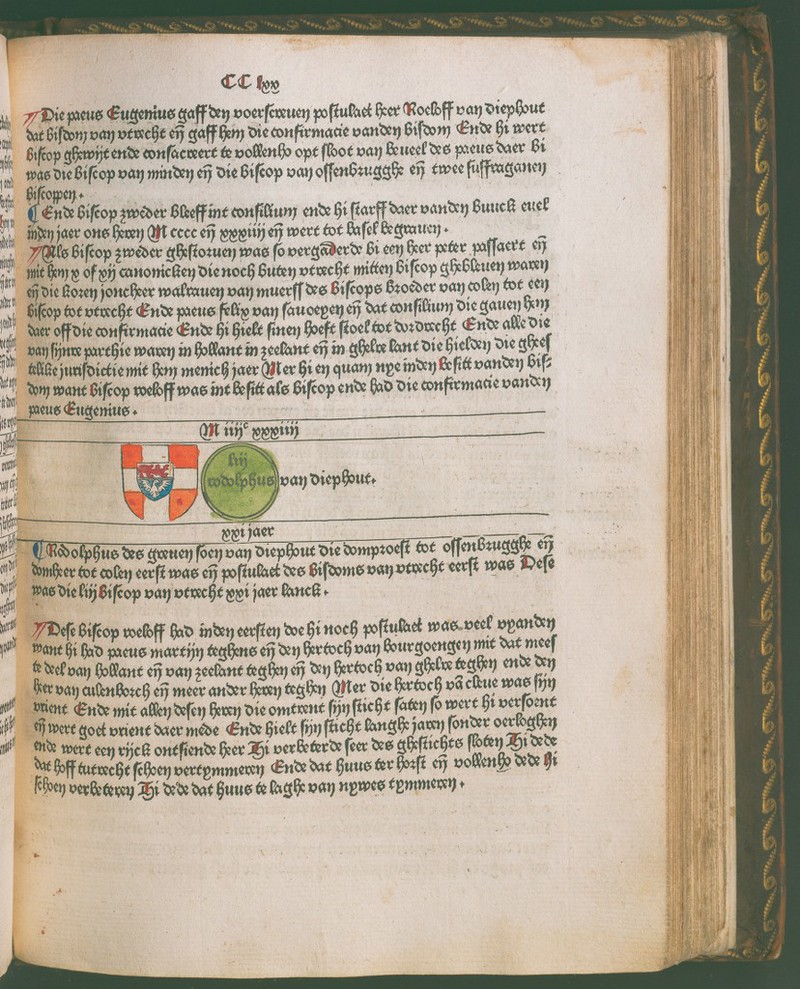 CC lxx
Die paeus Eugenius gaff den voerscreuen postulaet heer Roeloff van diephout
dat bisdom van vtrecht eñ gaff hem die confirmacie vanden bisdom Ende hi wert
biscop ghewijt ende consacreert te vollenho opt sloot van beueel des paeus daer bi
was die biscop van minden eñ die biscop van ossenbrugghe eñ twee suffraganen
biscoppen.
Ende biscop zweder bleeff int consilium ende hi starff daer vanden buuck euel
inden jaer ons heren M cccc eñ xxxiiij eñ wert tot basel begrauen.
Als biscop zweder ghestoruen was so vergaderde bi een heer peter passaert eñ
mit hem x of xij canonicken die noch buten vtrecht mitten biscop ghebleuen waren
eñ die koren joncheer walrauen van muerss des biscops broeder van colen tot een
biscop tot vtrecht Ende paeus felix van sauoeyen eñ dat consilium die gauen hem
daer off die confirmacie Ende hi hielt sinen hoeft stoel tot dordrecht Ende alle die
van sijnre parthie waren in hollant in zeelant eñ in ghelre lant die hielden die ghees
telike jurisdictie mit hem menich jaer Mer hi en quam nye inden besitt vanden bis-
dom want biscop roeloff was int besitt als biscop ende had die confirmacie vanden
paeus Eugenius.
M iiijc xxxiiij
liij
rodolphus van diephout.
xxi jaer
Rodolphus des greuen soen van diephout die domproest tot ossenbrugghe eñ
domheer tot colen eerst was eñ postulaet des bisdoms van vtrecht eerst was Dese
was die liij biscop van vtrecht xxi jaer lanck.
Dese biscop roeloff had inden eersten doe hi noch postulaet was veel vyanden
want hi had paeus martijn teghens eñ den hertoch van bourgoengen mit dat mees
te deel van hollant eñ van zeelant teghen eñ den hertoch van ghelre teghen ende den
heer van culenborch eñ meer ander heren teghen Mer die hertoch vā cleue was sijn
vrient Ende mit allen desen heren die omtrent sijn sticht saten so wert hi versoent
eñ wert goet vrient daer mede Ende hielt sijn sticht langhe jaren sonder oerloghen
ende wert een rijck ontsiende heer Hi verbeterde seer des ghestichts sloten Hi dede
dat hoff tutrecht schoen vertymmeren Ende dat huus ter horst eñ vollenho dede hi
schoen verbeteren Hi dede dat huus te laghe van nywes tymmeren.